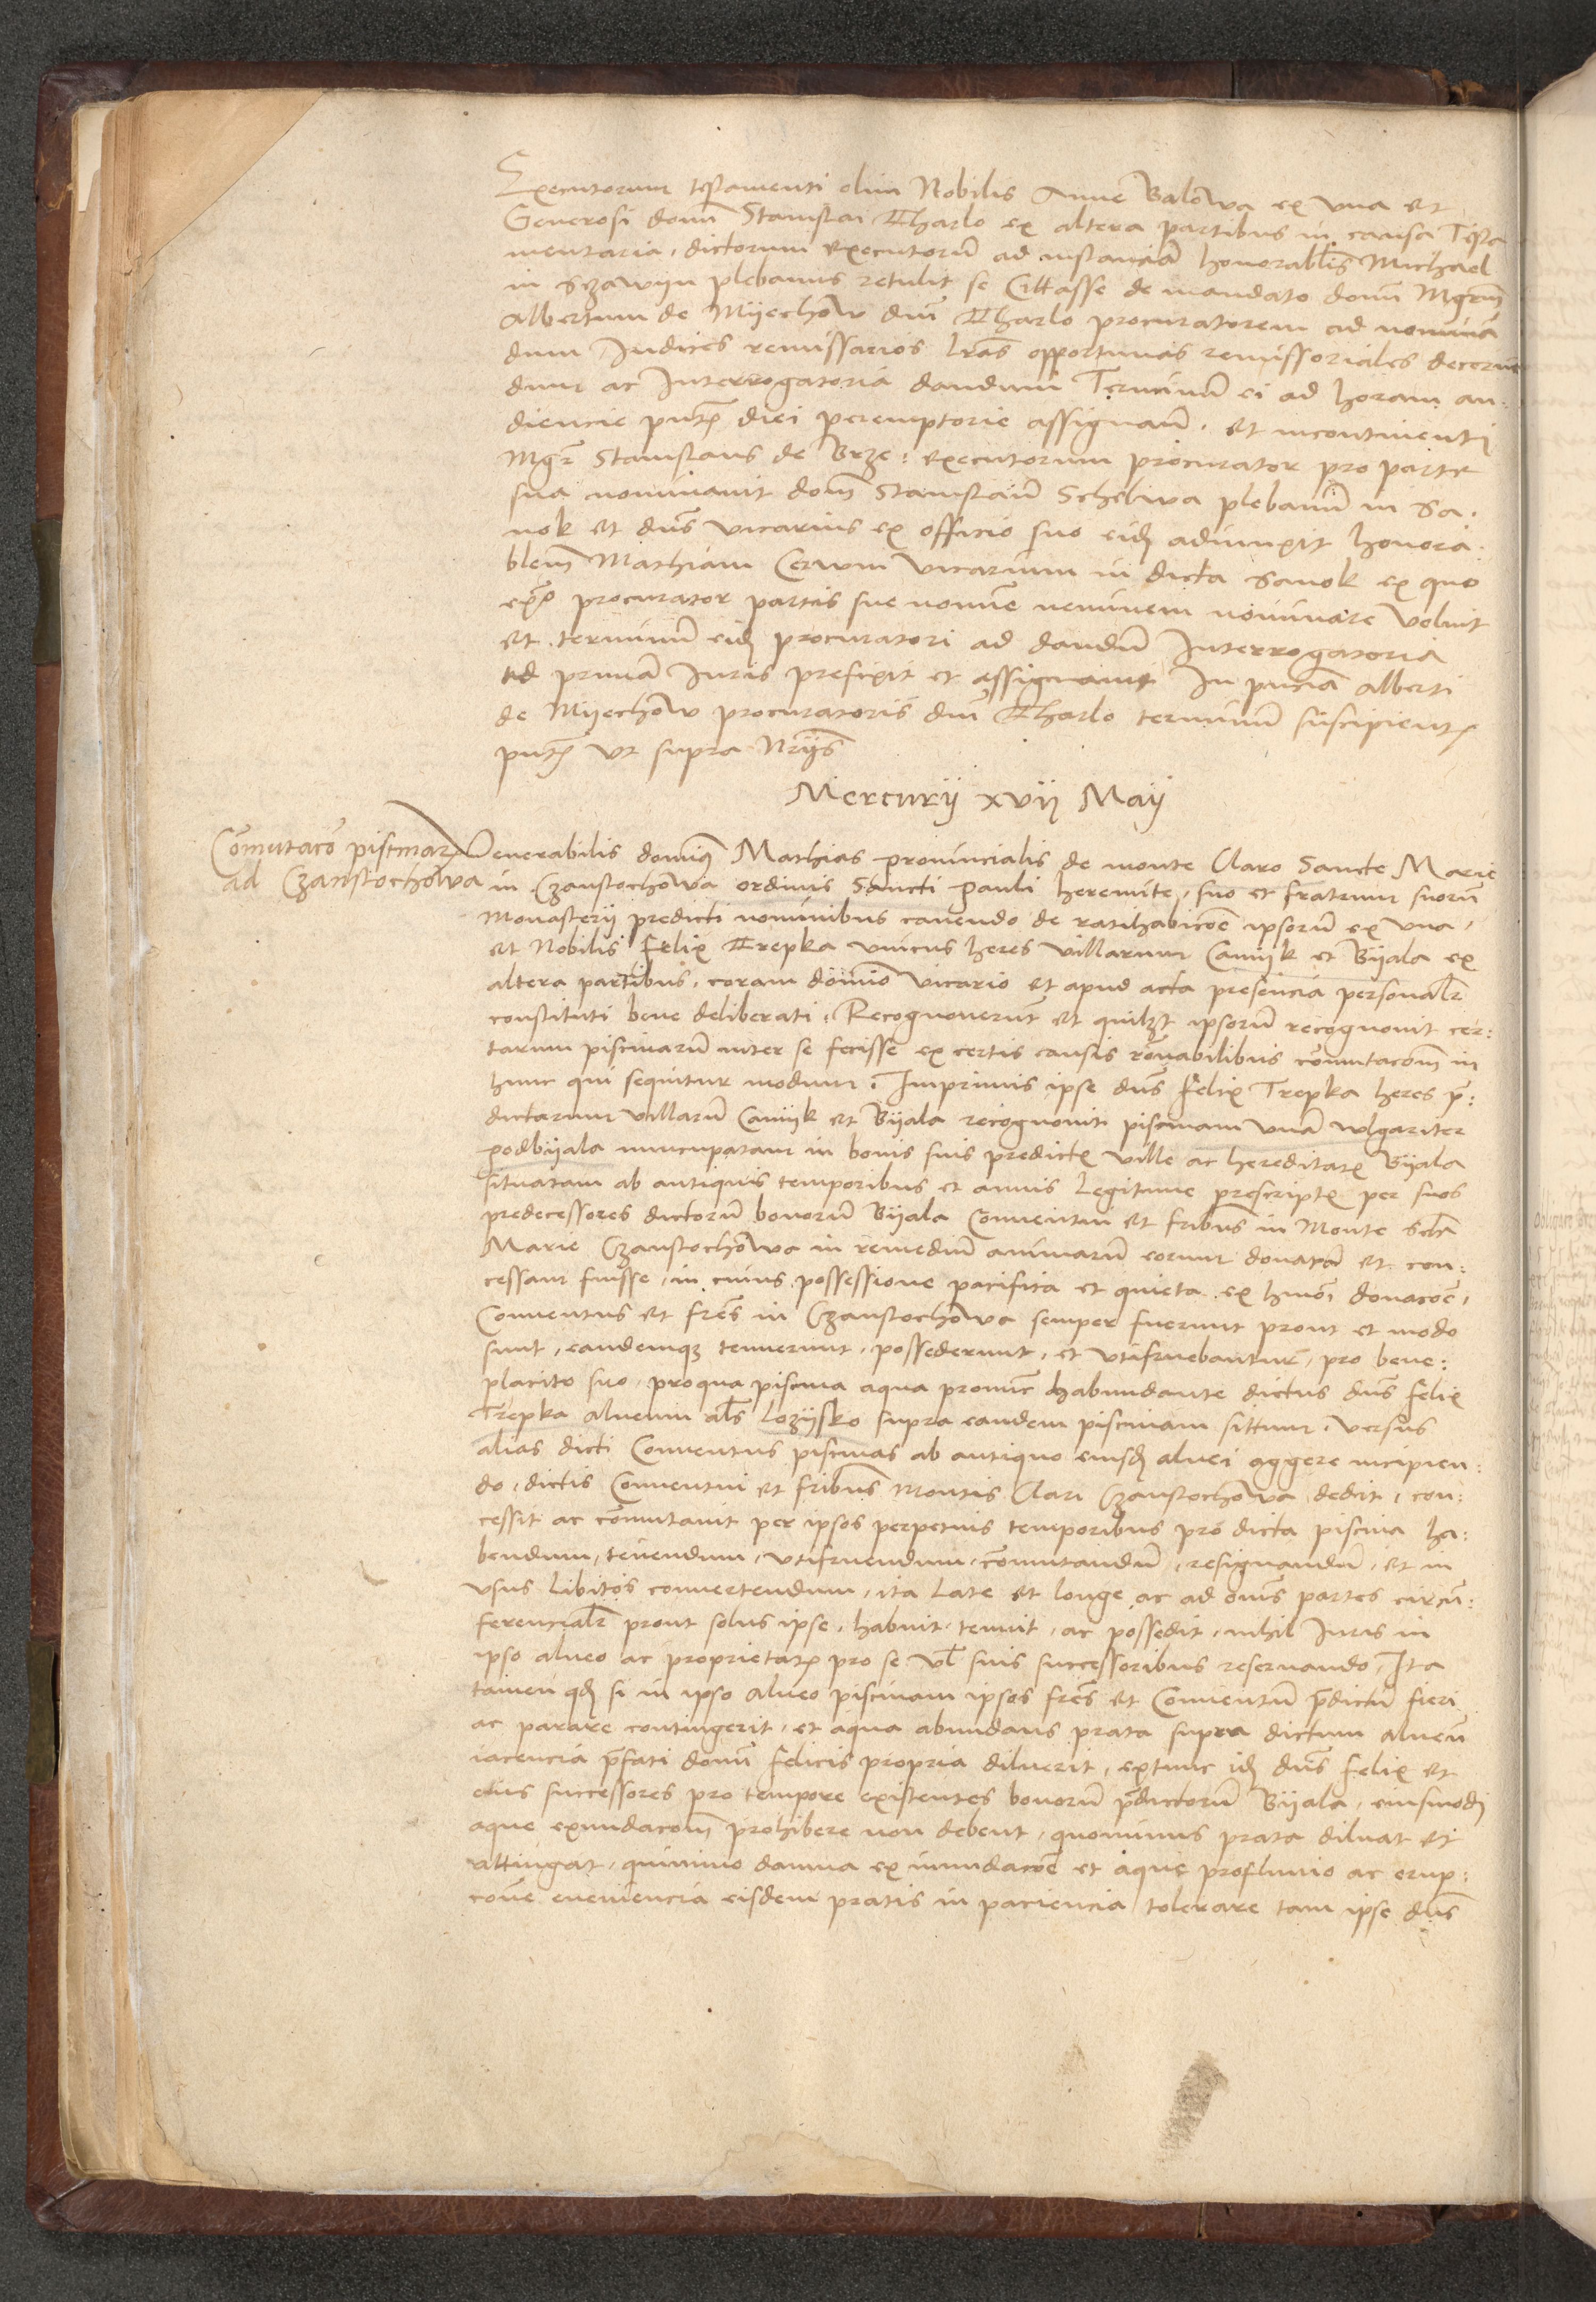 Executorum testamenti olim Nobilis Anne Balowa ex vna et
Generosi domi Stanislai Tharlo ex altera partibus in causa Testa
mentaria, dictorum executorũ ad instanciã honorabl̃is Michael
in Szawyn plebanus retulit se Cittasse de mandato domi Mgrm̃
Albertum de Myechow dñi Tharlo procuratorem ad nominã
dum Iudices remissarios lr̃as opportunas remissoriales decerne
dum ac Interrogatoria dandum Terminũ ei ad horam au:
diencie pñtis diei peremptorie assignaũ. et incontinenti
Mgr̃ Stanislaus de Brze: executorum procurator pro parte
sua nominauit dom̃ Stanislaũ Schebna plebanũ in Sa.
nok et dñs vicarius ex officio suo eidẽ adiunxit honora.
blem̃ Mathiam Cerum vicarium in dicta Sanok ex quo
exᵒ procurator partis sue nomĩe neminem nominare voluit
et terminũ eidẽ procuratori ad dandũ Interrogatoria
ad primã Iuris prefixit et assignauit In pñciã Alberti
de Myechow procuratoris dñi Tharlo terminũ suscipientis
pñtibus vt supra Nrijs
Mercurij xvij Maij
Com̃utaco piscinarũ
ad Czanstochowa
Venerabilis dominꝰ Mathias prouincialis de monte Claro Sancte Marie
in Czanstochowa ordinis Sancti Pauli heremite, suo et fratrum suorũ
Monasterij predicti nominibus cauendo de ratihabicõe ipsorũ ex vna,
et Nobilis Felix Trepka vnicus heres villarum Camyk et Byala ex
altera partibus, coram domino vicario et apud acta presencia personalr̃
constituti bene deliberati. Recognouerunt et quilꝫt ipsorũ recognouit cer:
tarum piscinarũ inter se fecisse ex certis causis rõnabilibus com̃utacom̃ in
hunc qui sequitur modum. Imprimis ipse dñs Felix Trepka heres p̃:
dictarum villarũ Camyk et Byala recognouit piscinam vnã wlgariter
podbyala nuncupatam in bonis suis predicte ville ac hereditatis Byala
situatam ab antiquis temporibus et annis legitime prescriptis per suos
predecessores dictorũ bonorũ Byala Conuentui et fribus in Monte Sctã
Marie Czanstochowa in remediũ animarũ eorum donatã et con:
cessam fuisse, in cuius possessione pacifica et quieta ex hmõi donacoẽ,
Conuentus et fres̃ in Czanstochowa semper fuerunt prout et modo
sunt, eandemqꝫ tenuerunt, possederunt, et vtifruebantur, pro bene:
placito suo, pro qua piscina aqua pronũc habundante dictus dñs Felix
Trepka alueum al̃s lozysko supra eandem piscinam situm, versus
alias dicti Conuentus piscinas ab antiquo eiusdẽ aluei aggere incipien:
do, dictis Conuentui et fribus̃ Montis Clari Czanstochowa dedit, con:
cessit ac com̃utauit per ipsos perpetuis temporibus pro dicta piscina ha:
bendum, tenendum, vtifruendum, com̃utandũ, resignandũ, et in
vsus libitos conuertendum, ita late et longe ac ad om̃s partes circũ:
ferencialr̃ prout solus ipse, habuit, tenuit, ac possedit, nihil Iuris in
ipso alueo ac proprietatis pro se vl̃ suis successoribus reseruando, Ita
tamen qd̃ si in ipso alueo piscinam ipsos fres̃ et Conuentũ p̃dictũ fieri
ac parare contingerit, et aqua abundans prata supra dictum alueũ
iacencia p̃fati domi Felicis propria diluerit, extunc idẽ dñs Felix et
eius successores pro tempore existentes bonorũ p̃dictorũ Byala, eiusmodi
aque exundacom̃ prohibere non debent, quominus prata diluat et
attingat, quinimo damna ex inundacõe et aque profluuio ac erup:
cone euenienciã eisdem pratis in paciencia tolerare tam ipse dñs